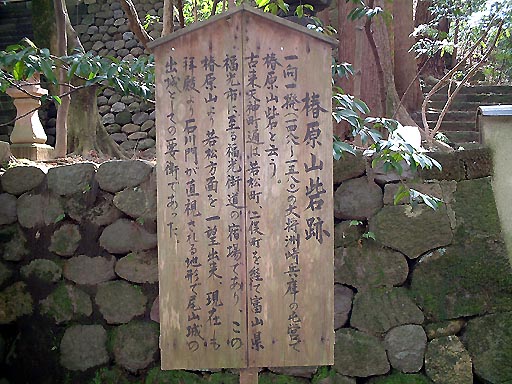 椿原山砦跡
一向一揆(一四八八-一五八〇)の大将洲崎兵庫の居営で
椿原山砦と云う。
古来天神町通は若松町、二俣町を経て富山県
福光市に至る福光街道の宿場であり、この
椿原山は若松方面を一望出来、現在も
拝殿より石川門が直視される地形で尾山城の
出城としての要衝であった。